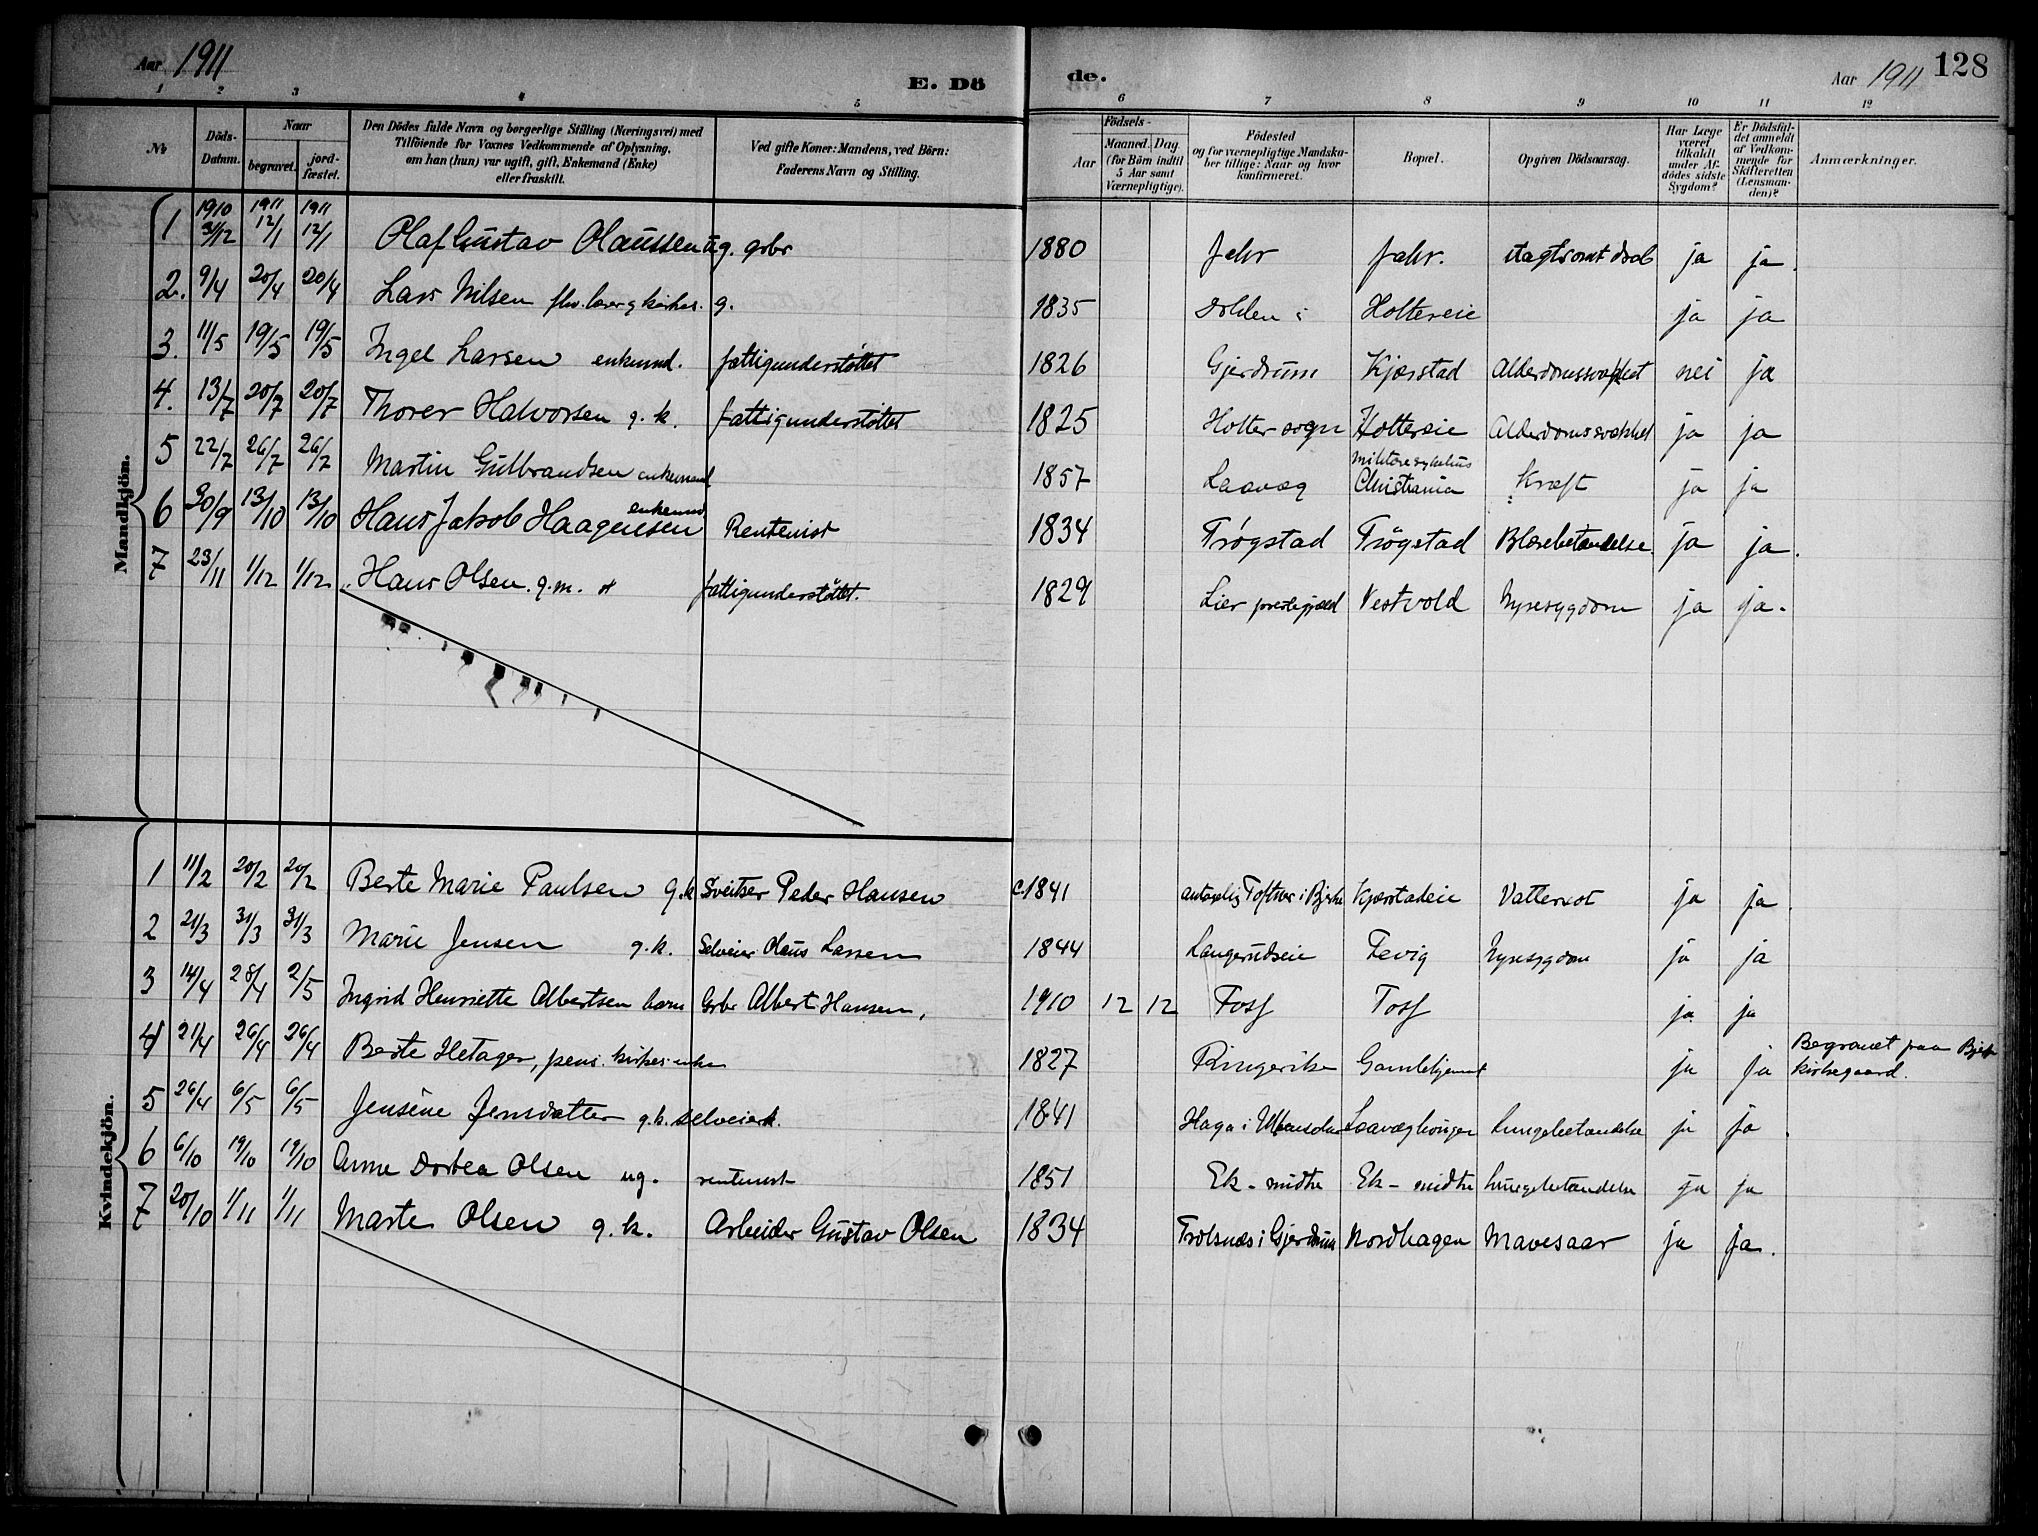 Aar 1911 E. Dö de. Aar 1911 128
1 2 3 4 5 6 7 8 9 10 11 12
No Döds-Datum. Naar begravet. jordfæstet. Den Dödes fulde Navn og borgerlige Stilling (Næringsvei) med Tilföiende for Voxnes Vedkommende af Oplysning, om han (hun) var ugift, gift, Enkemand (Enke) eller fraskilt. Ved gifte Koner: Mandens, ved Börn: Faderens Navn og Stilling. Födsels- Aar Maaned. Dag (for Börn indtil 5 Aar samt Værnepligtige). Födested og for værnepligtige Mandskaber tillige: Naar og hvor konfirmeret. Bopæl. Opgiven Dödsaarsag. Har Læge været tilkaldt under Afdödes sidste Sygdom? Er Dödsfaldet anmeldt af Vedkommende for Skifteretten (Lensmanden)? Anmærkninger.
Mandkjön.
1 1910 31/12 1911 12/1 1911 12/1 Olaf Gustav Olaussen ug. grbr 1880 Jahr Jahr. drab ja ja.
2. 9/4 20/4 20/4 Lars Nilsen g. 1835 Holtereie ja ja
3. 11/5 19/5 19/5 Ingel Larsen enkemd. fattigunderstöttet 1826 Gjerdrum Kjærstad Alderdomssvækket nei ja
4. 13/7 20/7 20/7 Thorer Halvorsen g. k. fattigunderstöttet 1825 Holter sogn Holtereie Alderdomssvækket ja ja
5 22/7 26/7 26/7 Martin Gulbrandsen enkemand 1857 Laavæg militære sykehus Christiania Kræft ja ja
6 30/9 13/10 13/10 Hans Jakob Haagensen enkemd Rentenist 1834 Trögstad Trögstad Blærebetændelse ja ja.
7 23/11 1/12 1/12 Hans Olsen. g.m. fattigunderstöttet. 1829 Lier prestegjæld Vestvold Nyresygdom ja ja.
Kvindekjön.
1 11/2 20/2 20/2 Berte Marie Paulsen g.k Sveitser Peder Hansen c1841 antagelig Toftner i Bjerke Kjærstadeie Vattersot ja ja.
2 21/3 31/3 31/3 Marie Jensen g.k. Selveier Olaus Larsen 1844 Langerudseie Tevig Nyresygdom ja ja
3 14/4 28/4 2/5 Ingrid Henriette Albertsen barn Grbr Albert Hansen, 1910 12 12 Foss Foss ja ja
4 21/4 26/4 26/4 Berte Hetager, pens. kirkes. enke 1827 Ringerike Gamlehjemmet ja ja Begravet paa Bjerke kirkegaard.
5 26/4 6/5 6/5 Jensine Jensdatter g.k. selveierk. 1841 Haga i Ullensaker Lungebetændelse ja ja.
6 6/10 19/10 19/10 Anne Dortea Olsen ug. rentenist 1851 Ek - midtre Ek - midtre Lungebetændelse ja ja
7 20/10 1/11 1/11 Marte Olsen g. k. Arbeider Gustav Olsen 1834 Trolsnæs i Gjerdrum Nordhagen Mavesaar ja ja.